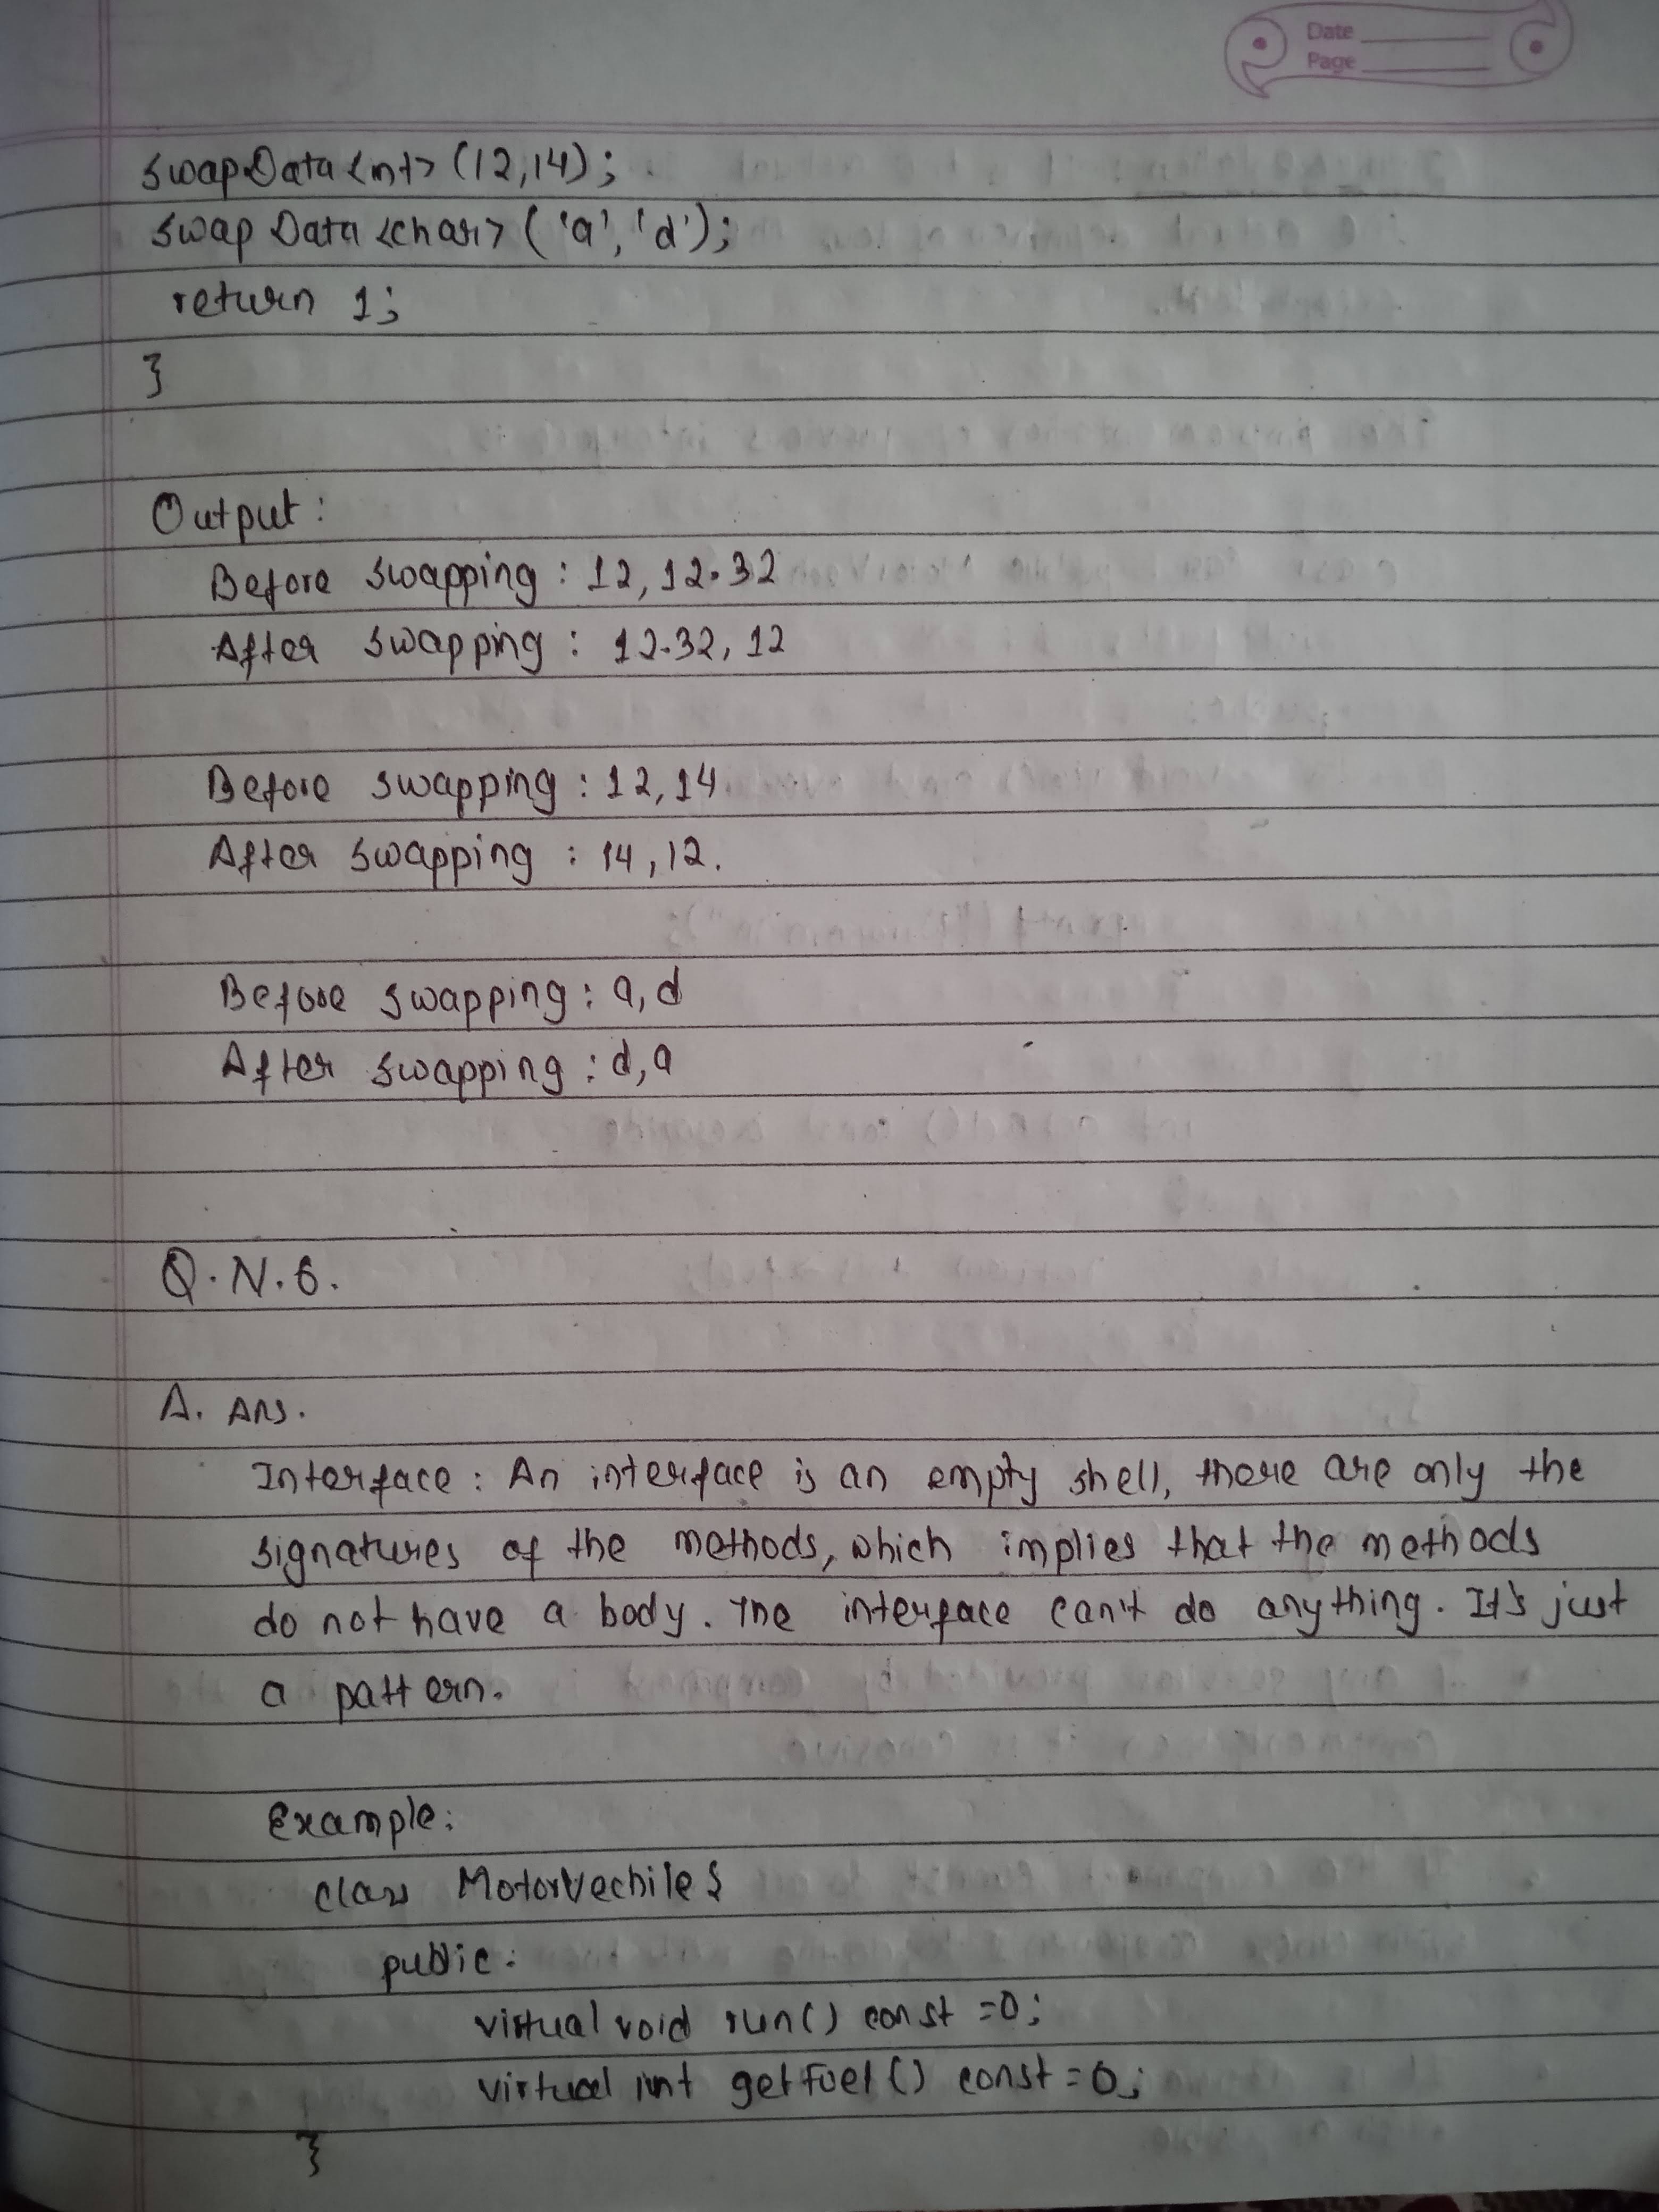 Date
Page
swapData<int>(12,14);
swapData<char>('a','d');
return 1;
}
Output:
Before swapping: 12, 12.32
After swapping: 12.32, 12
Before swapping: 12, 14
After swapping: 14, 12.
Before swapping: a, d
After swapping: d, a
Q.N.6.
A. Ans.
Interface: An interface is an empty shell, there are only the
signatures of the methods, which implies that the methods
do not have a body. The interface can't do anything. It's just
a pattern.
Example:
class MotorVechile{
public:
virtual void run() const =0;
virtual int getFuel() const=0;
}